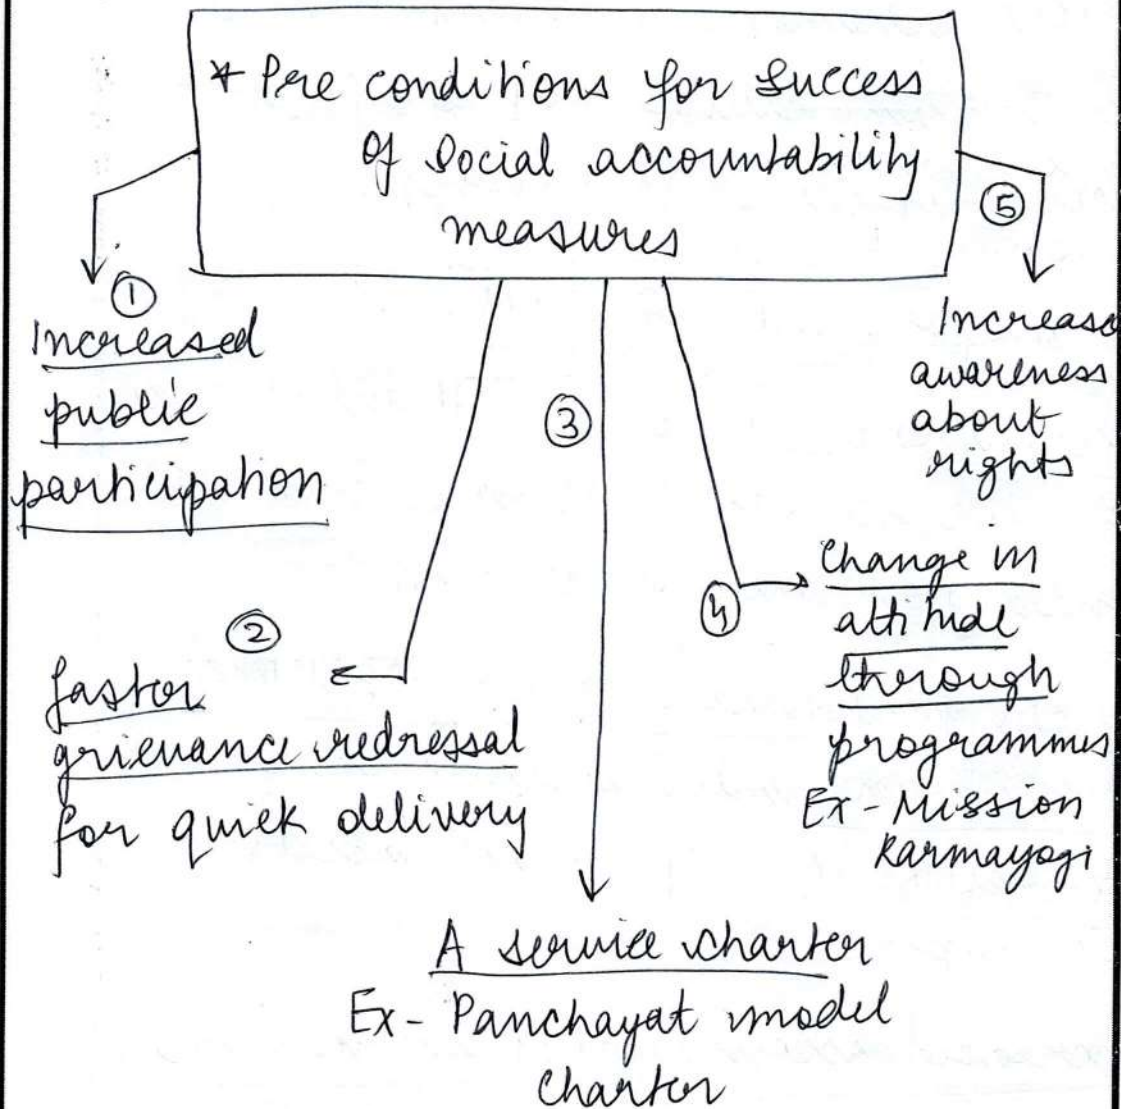 * Pre conditions for success
of social accountability
measures
①
Increased
public
participation
②
faster
grievance redressal
for quick delivery
③
A service charter
Ex- Panchayat model
Charter
④
Change in
attitude
through
programmes
Ex- Mission
Karmayogi
⑤
Increase
awareness
about
rights